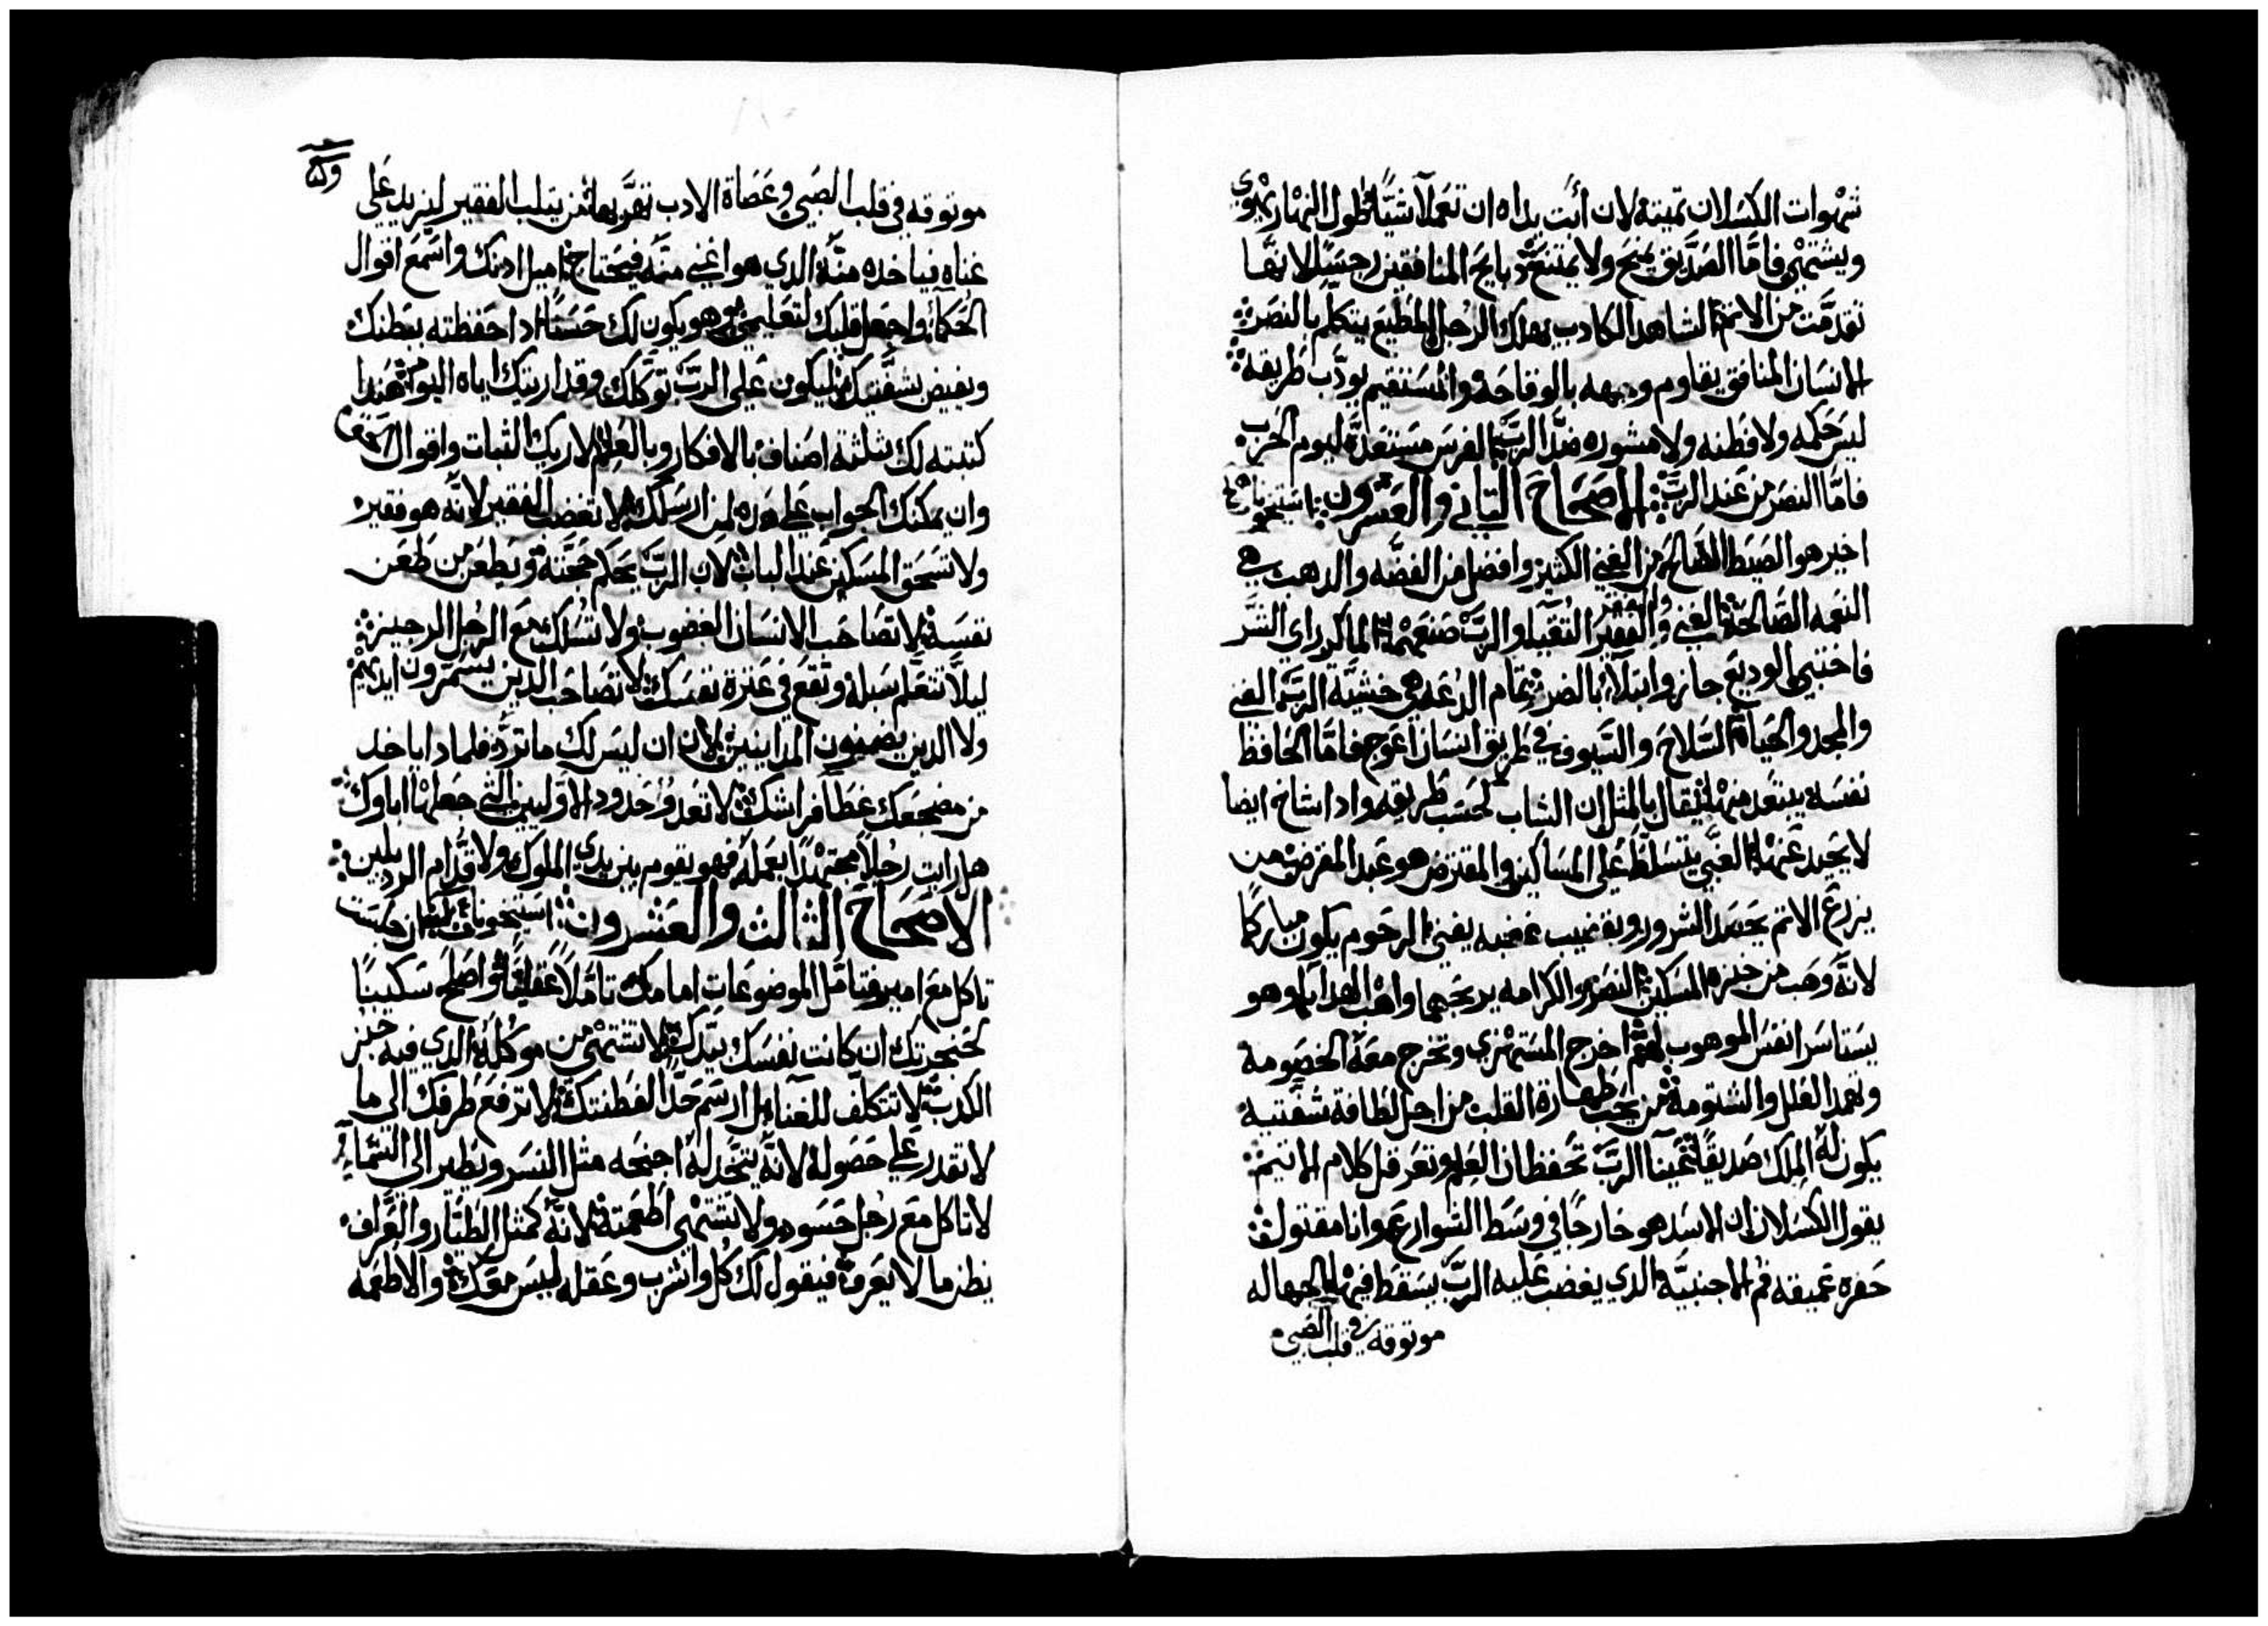 شهوات الكسلان تميته لان أبت يداه ان تعملا شيًا ۞ طول النهار يهوي
ويشتهي فامَّا الصدَّيق يمنح ولا يمتنع ۞ دبايح المنافقين رجسه لانهَّا
تقدمَّت من الاثم ۞ الشاهد الكادب يهلك الرجل المطيع يتكلم بالنصر ۞
الانسان المنافق يقاوم وجهه بالوقاحة والمستقيم يودَّب طريقه ۞
ليس حكمه ولا فطنه ولا مشوره ضدَّ الربّ ۞ الفرس مستعدَّه ليوم الحرب
فامَّا النصر من عند الربّ ۞ الاصحاح التاني والعشرون ۞ استيخونات
اخير هو الصيط الصالح من الغني الكتيز وافضل من الفضَّه والدهب هي
النعمه الصَّالحة ۞ الغني والفقير التقيا والربّ صنعهما ۞ الماكر راي الشر
فاختبي الوديع جاز وابتلا بالضرر ۞ تمام الدعه هي خشيَّه الربّ الغني
والمجد والحياة ۞ السلاح والسَّيوف في طريق انسان اعوج فامَّا الحافظ
نفسه يبتعد منها ۞ يقال بالمثل ان الشاب لحسب طريقه وادا شاخ ايضا
لا يحيد عنها ۞ الغني يتسلَّط علي المساكين والمقترض هو عبد المقرض ۞ من
يزرع الاتم يحصد الشرور وبقضيب غضبه يفني ۞ الرحوم يكون مباركًا
لانَّه وهب من خبزه المسكين ۞ النصر والكرامه يربحهما واهب الهدايا وهو
يستاسر انفس الموهوب لهم ۞ اخرج المستهزي وتخرج معه الخصومة
وتهمد العلل والشتومة ۞ من يحبَّ طهارة القلب من اجل لطافة شفتيه
يكون له الملك صديقًا ۞ عينا الربّ تحفظان العلم وتعرقل كلام الاتيم ۞
يقول الكسلان ان الاسد هو خارجًا في وسط الشوارع وانا مقتول ۞
حفره عميقه فم الاجنبيَّه الدي يغضب عليه الربّ يسقط فيها ۞ الجهاله
موتوقه في قلب الصبي
موتوقه في قلب الصبي وعصاة الادب تقرّبها ۞ من يتلب الفقير ليزيد علي
غناه فياخده منه الدي هو اغني منه فيحتاج ۞ اميل ادنك واسمع اقوال
الحكمآ واجعل قلبك لتعليمي ۞ وهو يكون لك حسنًا ادا حفظته ببطنك
ويفيض بشفتيك ۞ ليكون علي الربّ توكلك وقد اريتك اياه اليوم ۞ هندا
كتبته لك ثلثة اصناف بالافكار وبالعلم ۞ لاريك الثبات واقوال الحق
وان يمكنك الجواب علي هده لمن ارسلك ۞ لا تغصب الفقير لانَّه هو فقير
ولا تسحق المسكين عند الباب ۞ لان الربّ يحكم محجَّته ويطعن من طعن
نفسه ۞ لا تصاحب الانسان الغضوب ولا تسلك مع الرجل الرجيز ۞
ليلَّا تتعلم سبله وتقع في عثرة نفسك ۞ لا تصاحب الدين يسمّرون ايديهم
ولا الدين يضمنون المداينين ۞ لان ان ليس لك ما تردّ فلمادا ياخد
من مضجعك غطا فراشك ۞ لا تعد وحدود الاوليين التي جعلها اباوك ۞
هل رايت رجلًا مجتهدًا بعمله فهو يقوم بين يدي الملوك ولا قدَّام الرديلين ۞
الاصحاح الثالث والعشرون ۞ استيخونات ان جلست
تاكل مع امير فتامَّل الموضوعات امامك تامَّلًا عقليًا ۞ واصلح سكينًا
لحنجرتك ان كانت نفسك بيدك ۞ لا تشتهي من موكله الدي فيه خبز
الكدب ۞ لا تتكلف للغنا بل ارسم حدَّا لفطنتك ۞ لا ترفع طرفك الي ما
لا تقدر علي حصوله لانَّه يتخد له اجنحه مثل النسر ويطير الي السَّما
لا تاكل مع رجل حسود ولا تشتهي اطعمته ۞ لانَّه كمثل الطيَّار والعرَّاف
يظن ما لا يعرف ۞ فيقول لك كل واشرب وعقله ليس معك ۞ والاطعمه